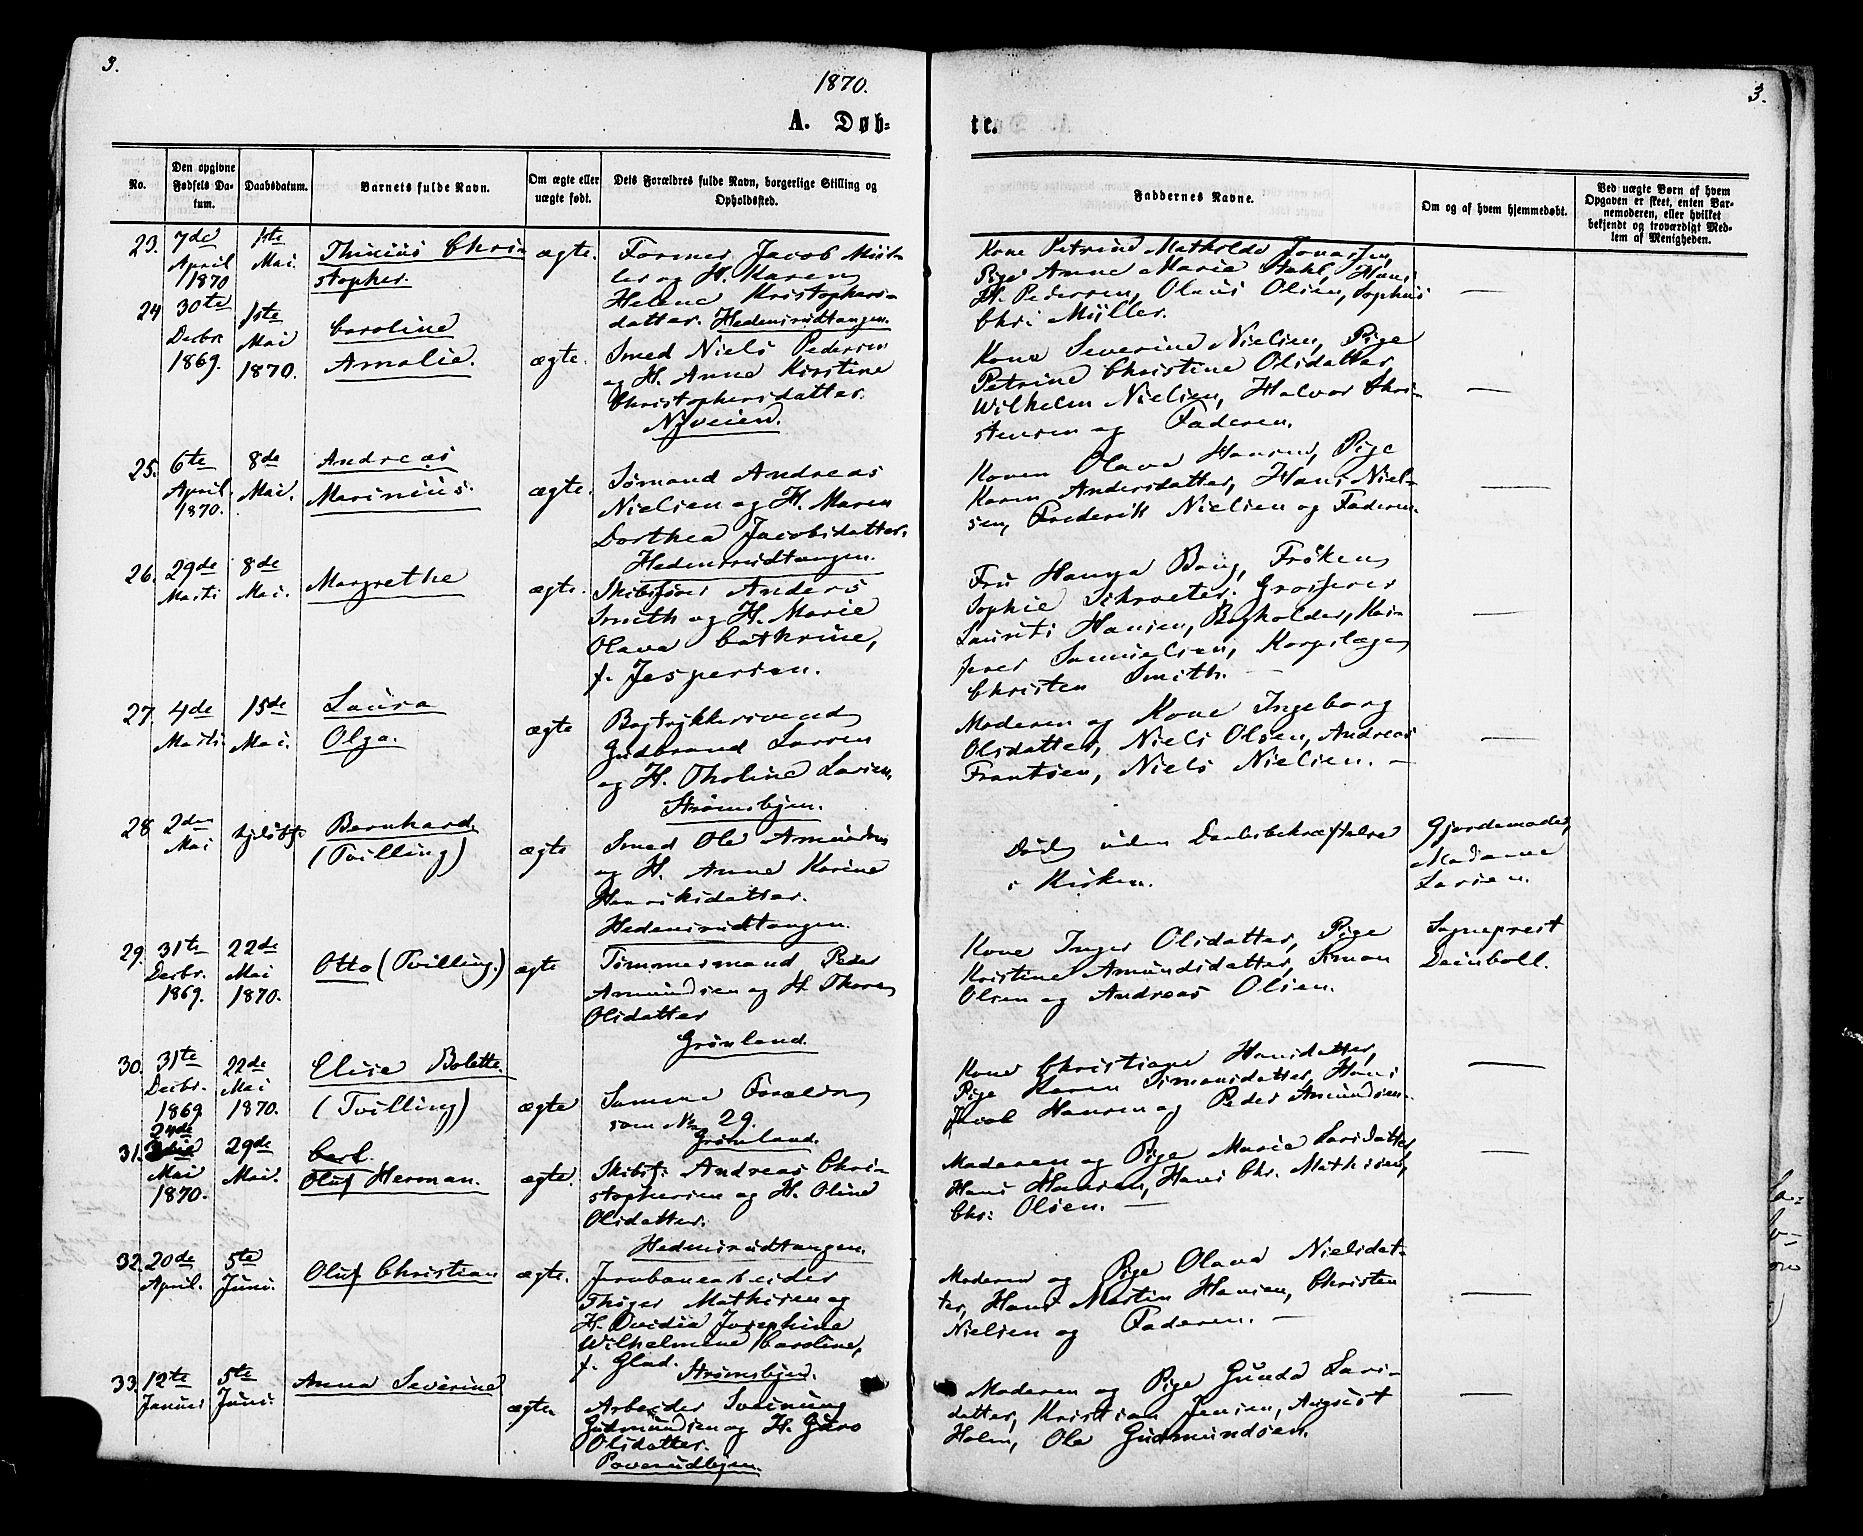 3.
1870.
3.
A. Døb-
te.
No.
Den opgivne Fødsels Da-
tum.
Daabsdatum.
Barnets fulde Navn.
Om ægte eller
uægte født.
Dets Forældres fulde Navn, borgerlige Stilling og
Opholdssted.
Faddernes Navne.
Om og af hvem hjemmedøbt.
Ved uægte Børn af hvem
Opgaven er skeet, enten Bar-
nemoderen, eller hvilket
bekjendt og troværdigt Med-
lem af Menigheden.
23. 7de
April
1870
1ste
Mai.
Thinius Chri-
stopher.
ægte.
Former Jacob Mül-
ler og H. Karen
Helene Kristophers-
datter. Hedensrudtangen.
Kone Petrine Mathilde Jonassen,
Pige Anne Marie Dahl, Hans
H. Pedersen, Olaus Olsen, Sophus
Chri Müller.
—
24 30te
Decbr.
1869.
1ste
Mai
1870.
Caroline
Amalie.
ægte.
Smed Niels Pedersen
og H. Anne Kirstine
Christophersdatter.
Nyveien.
Kone Severine Nielsen, Pige
Petrine Christine Olsdatter
Wilhelm Nielsen, Halvor Chri-
stensen og Faderen.
—
25. 6te
April.
1870.
8de
Mai.
Andreas
Marinius.
ægte.
Sømand Andreas
Nielsen og H. Maren
Dorthea Jacobsdatter.
Hedensrudtangen.
Konen Olava Hansen, Pige
Karen Andersdatter, Hans Niel-
sen, Frederik Nielsen og Faderen.
—
26. 29de
Marts
8de
Mai.
Margrethe
ægte.
Skibsfører Anders
Smith og H. Marie
Olava Cathrine,
f. Jespersen.
Fru Hanna Bang, Frøken
Sophie Schroeter, Grosserer
Laurits Hansen, Bogholder, Kas-
serer Samuelsen, Korpslæge
Christen Smith. —
—
27. 4de
Marts
15de
Mai.
Laura
Olga.
ægte
Bogtrykkersvend
Gudbrand Larsen
og H. Tholine Larsen,
Strømsbyen.
Moderen og Kone Ingeborg
Olsdatter, Niels Olsen, Andreas
Frantsen, Niels Nielsen. —
—
28 2den
Mai
hjdøbt.
Bernhard.
(Tvilling)
ægte
Smed Ole Amundsen
og H. Anne Karine
Henriksdatter.
Hedensrudtangen.
Død uden Daabsbekræftelse
i Kirken.
Gjordemoder,
Madame
Larsen.
29. 31te
Decbr.
1869.
22de
Mai
1870.
Otto (Tvilling.)
ægte
Tømmermand Peder
Amundsen og H. Thora
Olsdatter
Grønland.
Kone Inger Olsdatter, Pige
Kristine Amundsdatter, Simon
Olsen og Andreas Olsen.
Sogneprest
Deinboll.
30. 31te
Decbr.
1869
22de
Mai
1870.
Elise Bolette.
(Tvilling)
ægte
Samme Forældre
som No 29.
Grønland.
Kone Christiane Hansdatter,
Pige Karen Simonsdatter, Hans
Jacob Hansen og Peder Amundsen.
—
31. 24de
Mai
1870.
29de
Mai.
Carl
Oluf Herman.
ægte.
Skibsf: Andreas Chri-
stophersen og H. Oline
Olsdatter.
Hedensrudtangen.
Moderen og Pige Marie Larsdatter,
Hans Hansen, Hans Chr. Mathisen,
Chr: Olsen. —
—
32. 20de
April.
5te
Juni.
Oluf Christian
ægte.
Jernbanearbeider
Thiger Mathisen og
H. Ovidia Josephine
Wilhelmine Caroline,
f. Glad. Strømsbyen.
Moderen og Pige Olava Nielsdat-
ter, Hans Martin Hansen, Christen
Nielsen og Faderen. —
—
33. 12te
Januar
5te
Juni.
Anna Severine
ægte.
Arbeider Sveinung
Gudmundsen og H. Guro
Olsdatter.
Poverudbyen.
Moderen og Pige Gunda Lars-
datter, Kristian Jensen, August
Holm, Ole Gudmundsen.
—